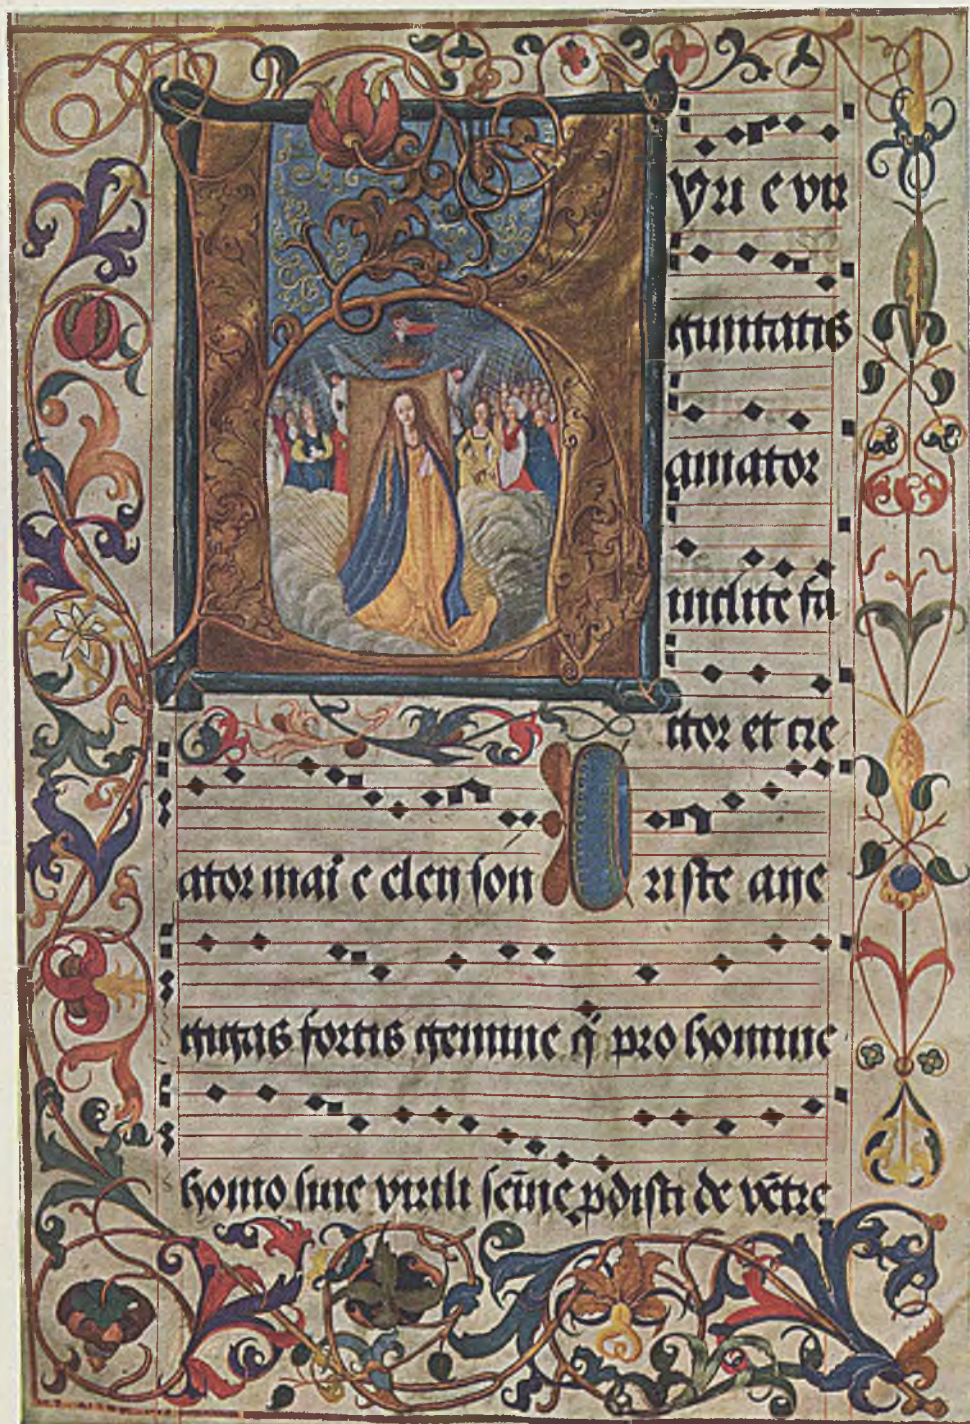 Kyri e vir
ginitatis
amator
inclite fa
ctor et cre
ator mari e eleyson Xpriste une
gigas fortis gemine q̄ pro homine
homo sine virili semīe ꝓdisti de vētre